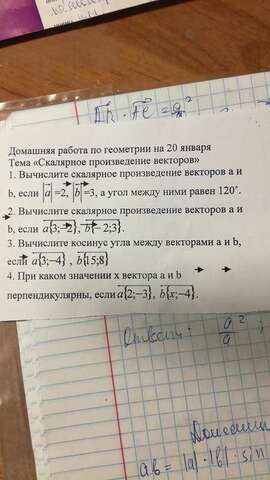 AB · AC = a²/2
Домашняя работа по геометрии на 20 января
Тема «Скалярное произведение векторов»
1. Вычислите скалярное произведение векторов a и
b, если |a|=2, |b|=3, а угол между ними равен 120°.
2. Вычислите скалярное произведение векторов a и
b, если a{3; -2}, b{- 2;3}.
3. Вычислите косинус угла между векторами a и b,
если a{3;-4} , b{15;8}
4. При каком значении x вектора a и b
перпендикулярны, если a{2;-3}, b{x;-4}.
Ответ: a²
ab = |a| · |b| · sin